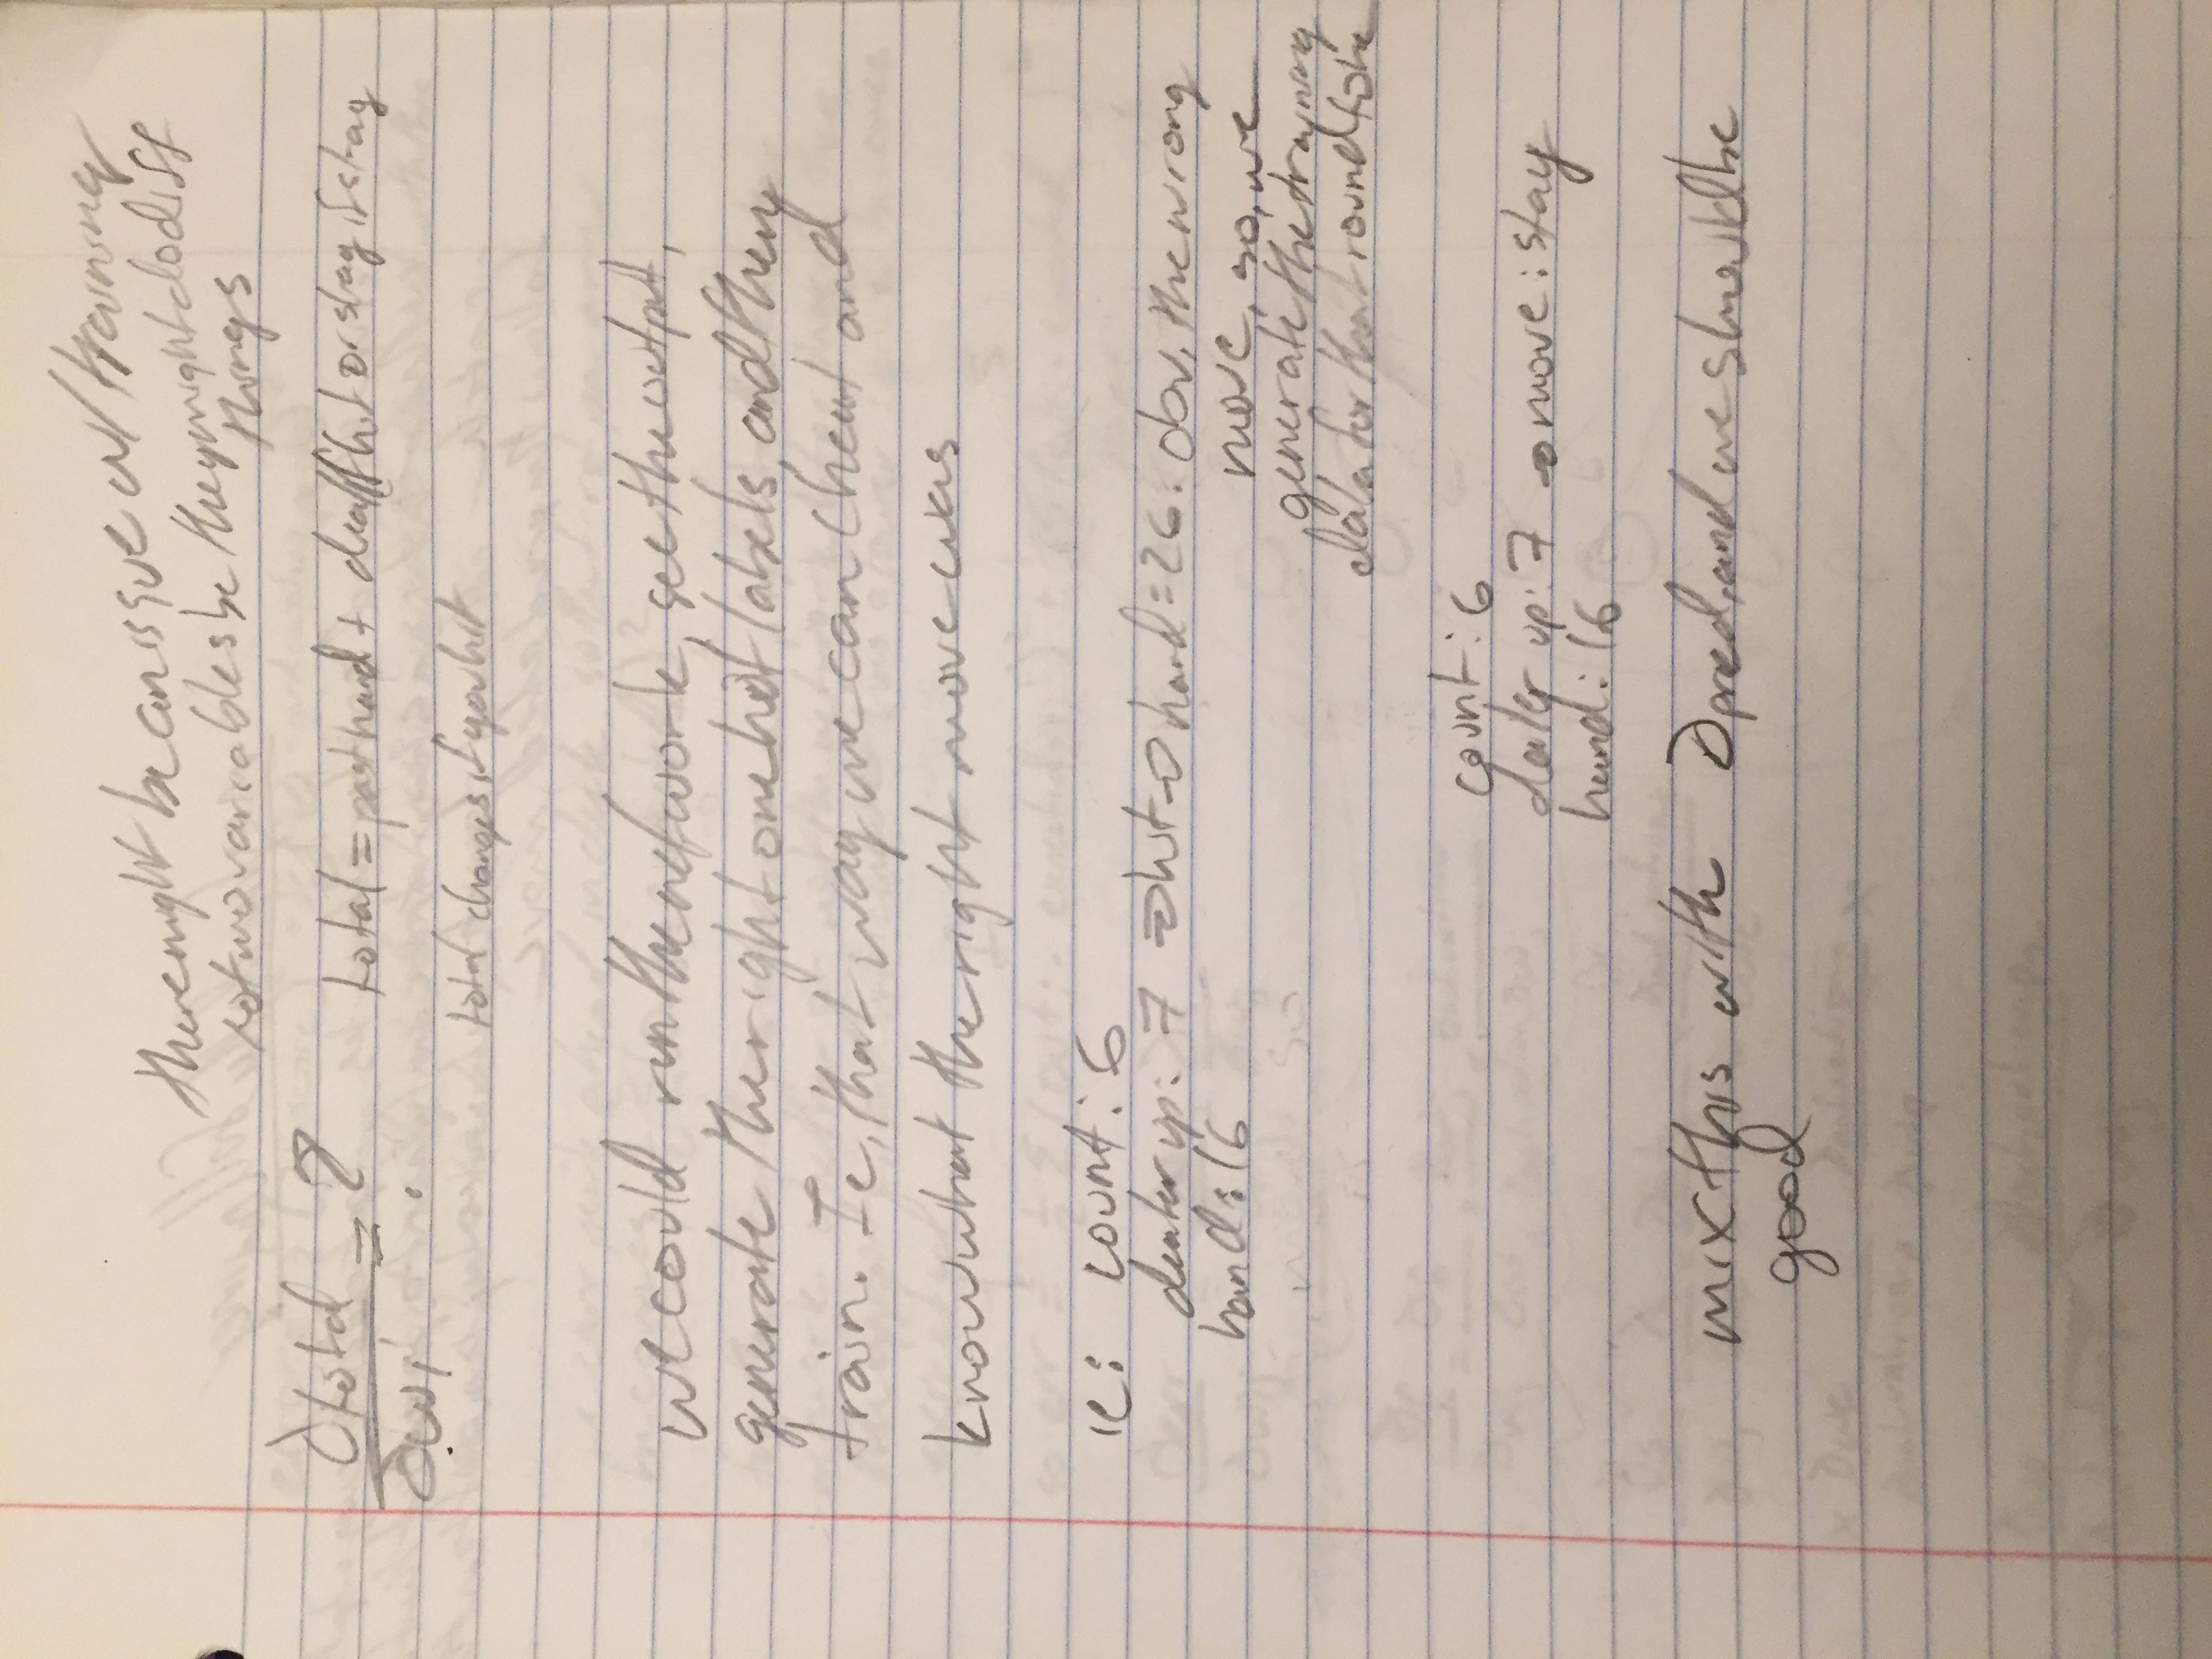 there might be an issue w/ training
two variables bc they might do diff
things
∂total
= ?
∂wi
total = past hand + deal if hit or stay if stay
total changes if you hit
we could run the network, see the output,
generate the right one hot labels, and then
train. Ie, that way we can cheat and
know what the right move was
ie: count: 6
dealer up: 7 → hit → hand = 26. obv, the wrong
hand: 16
move, so, we
generate the training
data for that round to be
count: 6
dealer up: 7 → move: stay
hand: 16
mix this with ∂pred, and we should be
good